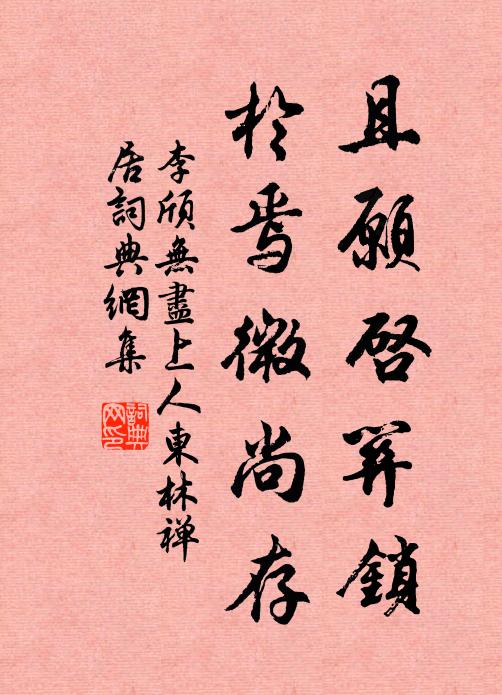 且願啓關鎖
於焉微尚存
李頎無盡上人東林禪
居詞典網集
詞典
网印